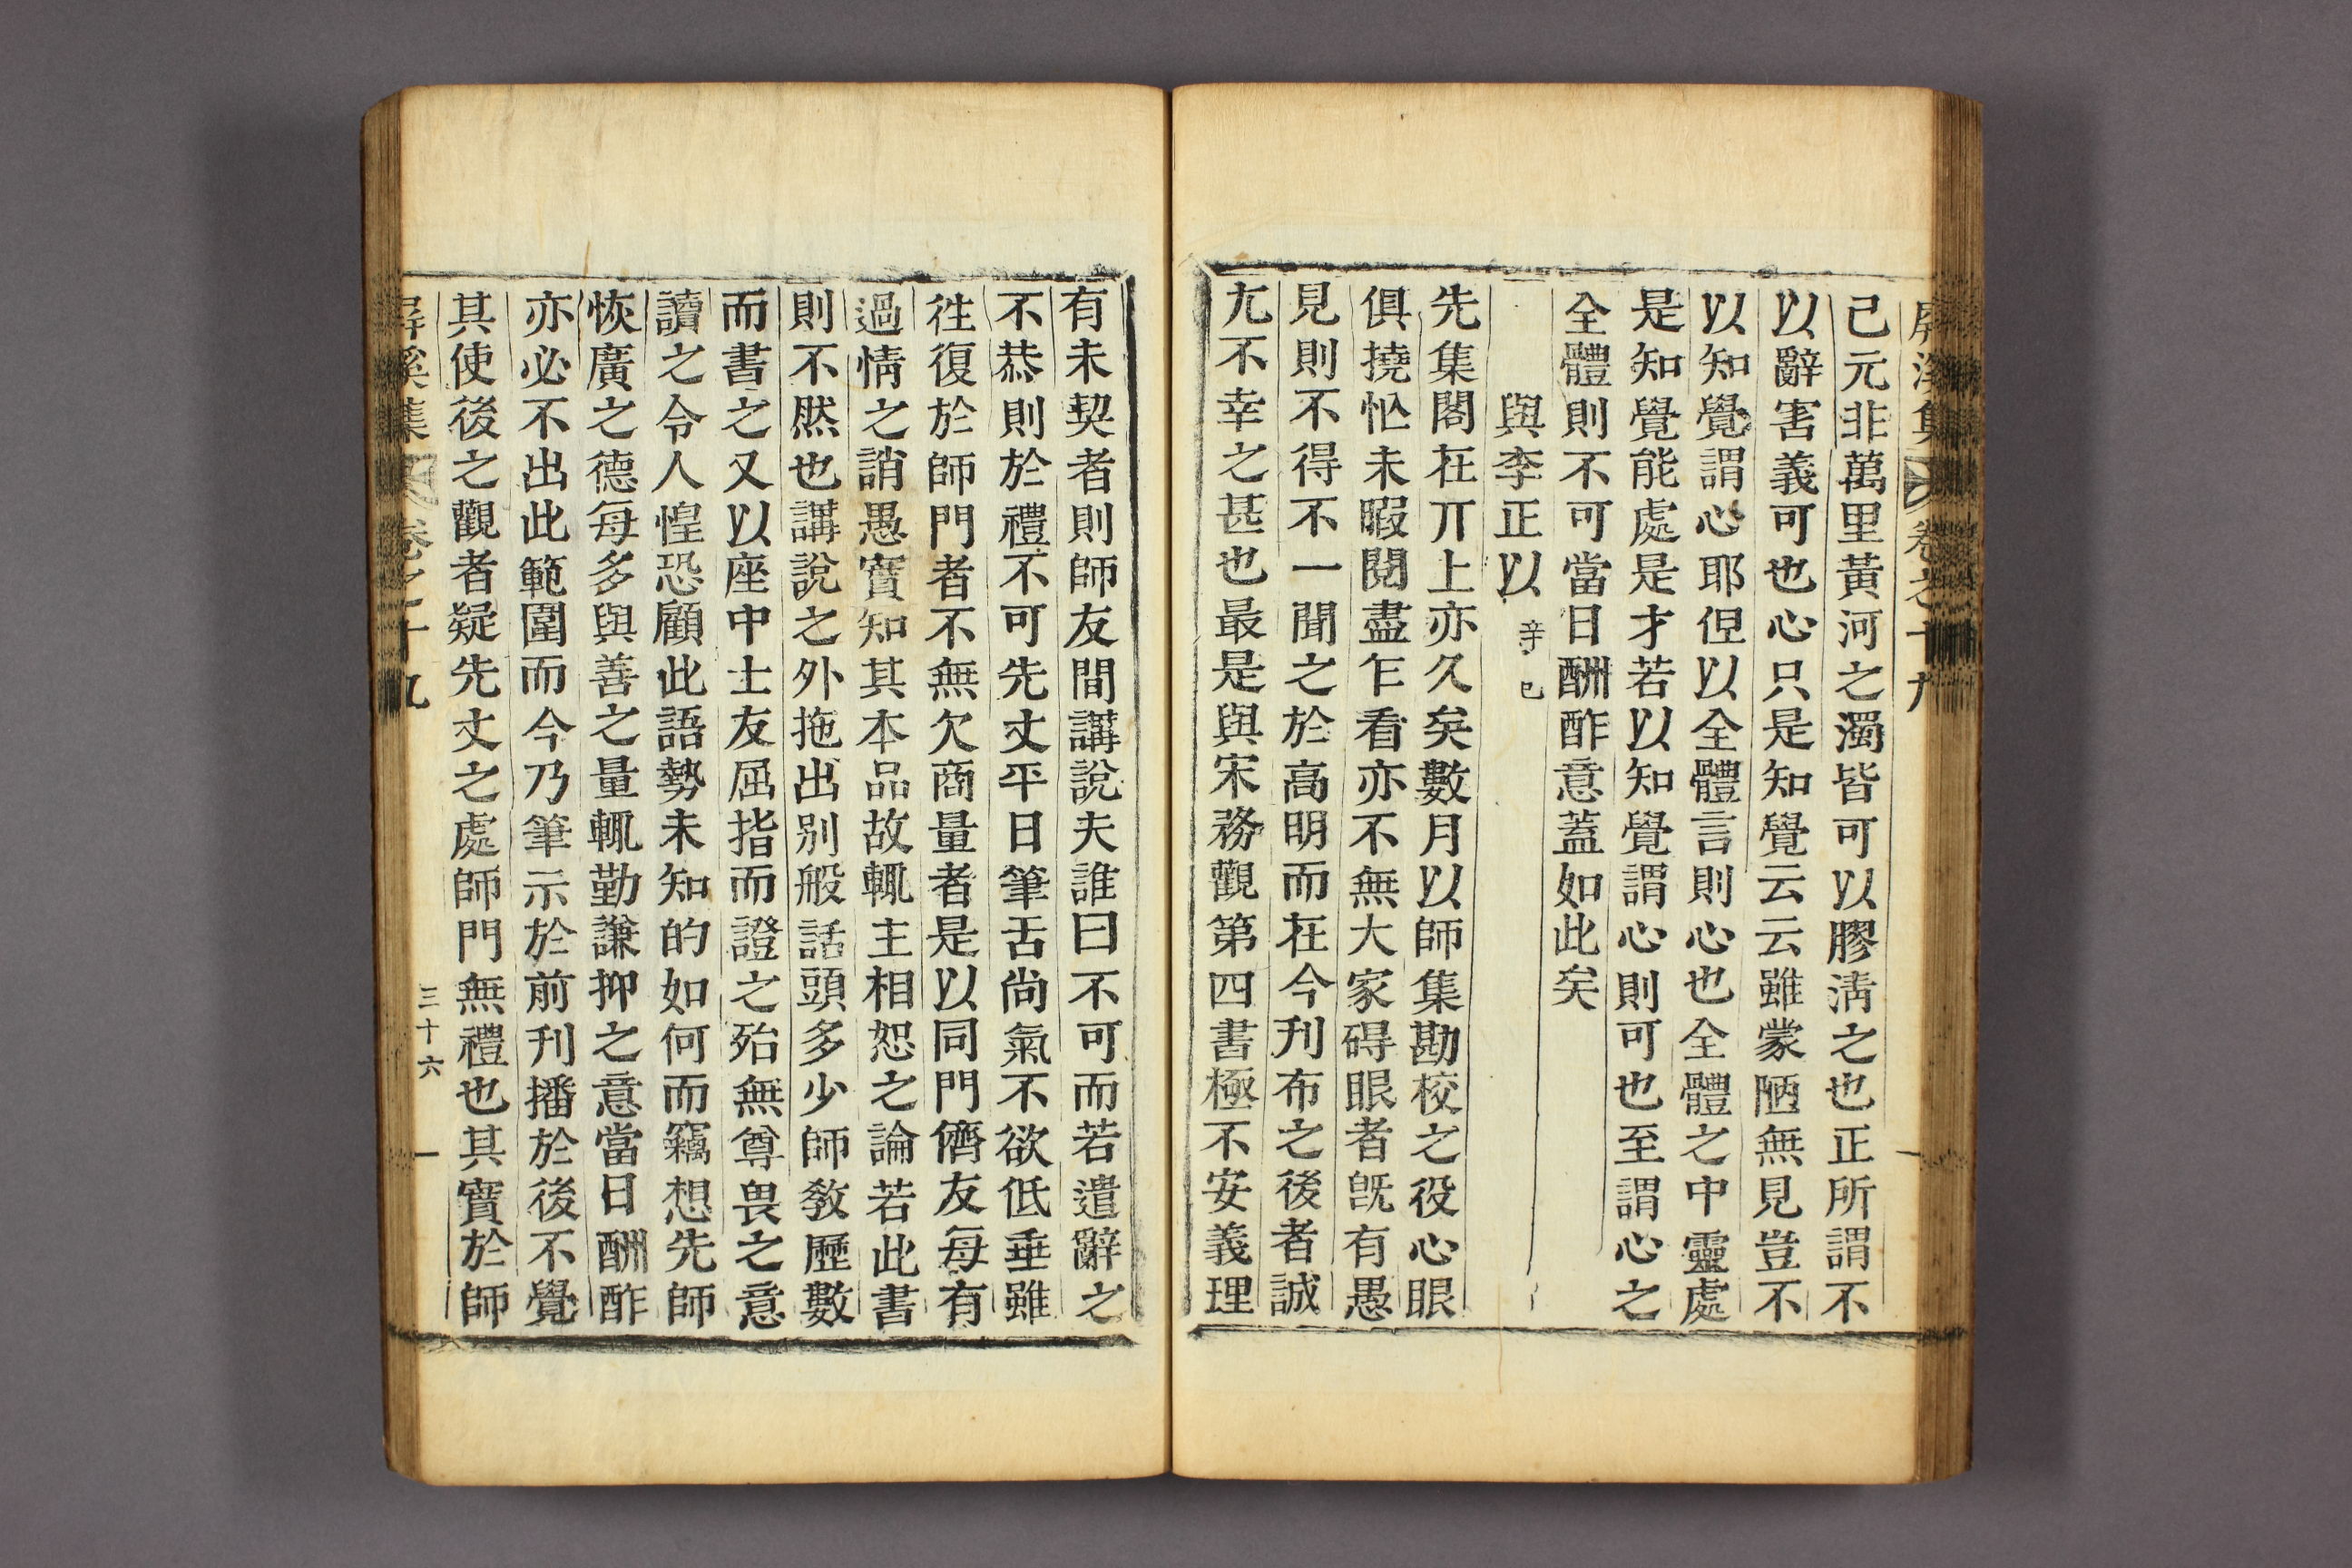 屛溪集 卷之十九
己元非萬里黃河之濁皆可以膠淸之也正所謂不
以辭害義可也心只是知覺云云雖蒙陋無見豈不
以知覺謂心耶但以全體言則心也全體之中靈處
是知覺能處是才若以知覺謂心則可也至謂心之
全體則不可當日酬酢意蓋如此矣
與李正以 辛巳
先集閣在丌上亦久矣數月以師集勘校之役心眼
俱撓忙未暇閱盡乍看亦不無大家碍眼者旣有愚
見則不得不一聞之於高明而在今刊布之後者誠
尢不幸之甚也最是與宋務觀第四書極不安義理
有未契者則師友間講說夫誰曰不可而若遣辭之
不恭則於禮不可先丈平日筆舌尚氣不欲低垂雖
徃復於師門者不無欠商量者是以同門儕友每有
過情之誚愚實知其本品故輒主相恕之論若此書
則不然也講說之外拖出别般話頭多少師敎歷數
而書之又以座中士友屈指而證之殆無尊畏之意
讀之令人惶恐顧此語勢未知的如何而竊想先師
恢廣之德每多與善之量輒勤謙抑之意當日酬酢
亦必不出此範圍而今乃筆示於前刊播於後不覺
其使後之觀者疑先丈之處師門無禮也其實於師
屛溪集 卷之十九 三十六